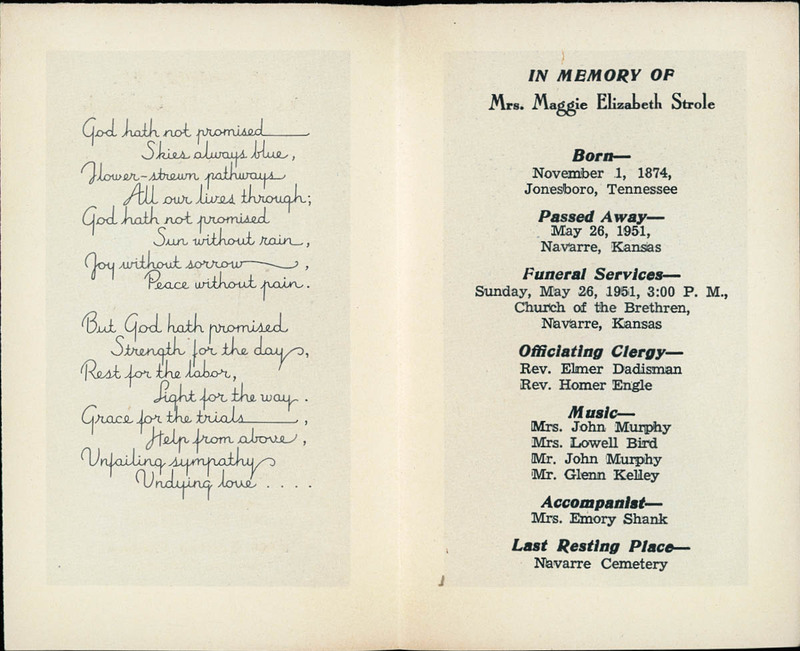 God hath not promised
Skies always blue,
Flower-strewn pathways
All our lives through;
God hath not promised
Sun without rain,
Joy without sorrow,
Peace without pain.
But God hath promised
Strength for the day,
Rest for the labor,
Light for the way.
Grace for the trials,
Help from above,
Unfailing sympathy
Undying love . . . .
IN MEMORY OF
Mrs. Maggie Elizabeth Strole
Born—
November 1, 1874,
Jonesboro, Tennessee
Passed Away—
May 26, 1951,
Navarre, Kansas
Funeral Services—
Sunday, May 26, 1951, 3:00 P. M.,
Church of the Brethren,
Navarre, Kansas
Officiating Clergy—
Rev. Elmer Dadisman
Rev. Homer Engle
Music—
Mrs. John Murphy
Mrs. Lowell Bird
Mr. John Murphy
Mr. Glenn Kelley
Accompanist—
Mrs. Emory Shank
Last Resting Place—
Navarre Cemetery